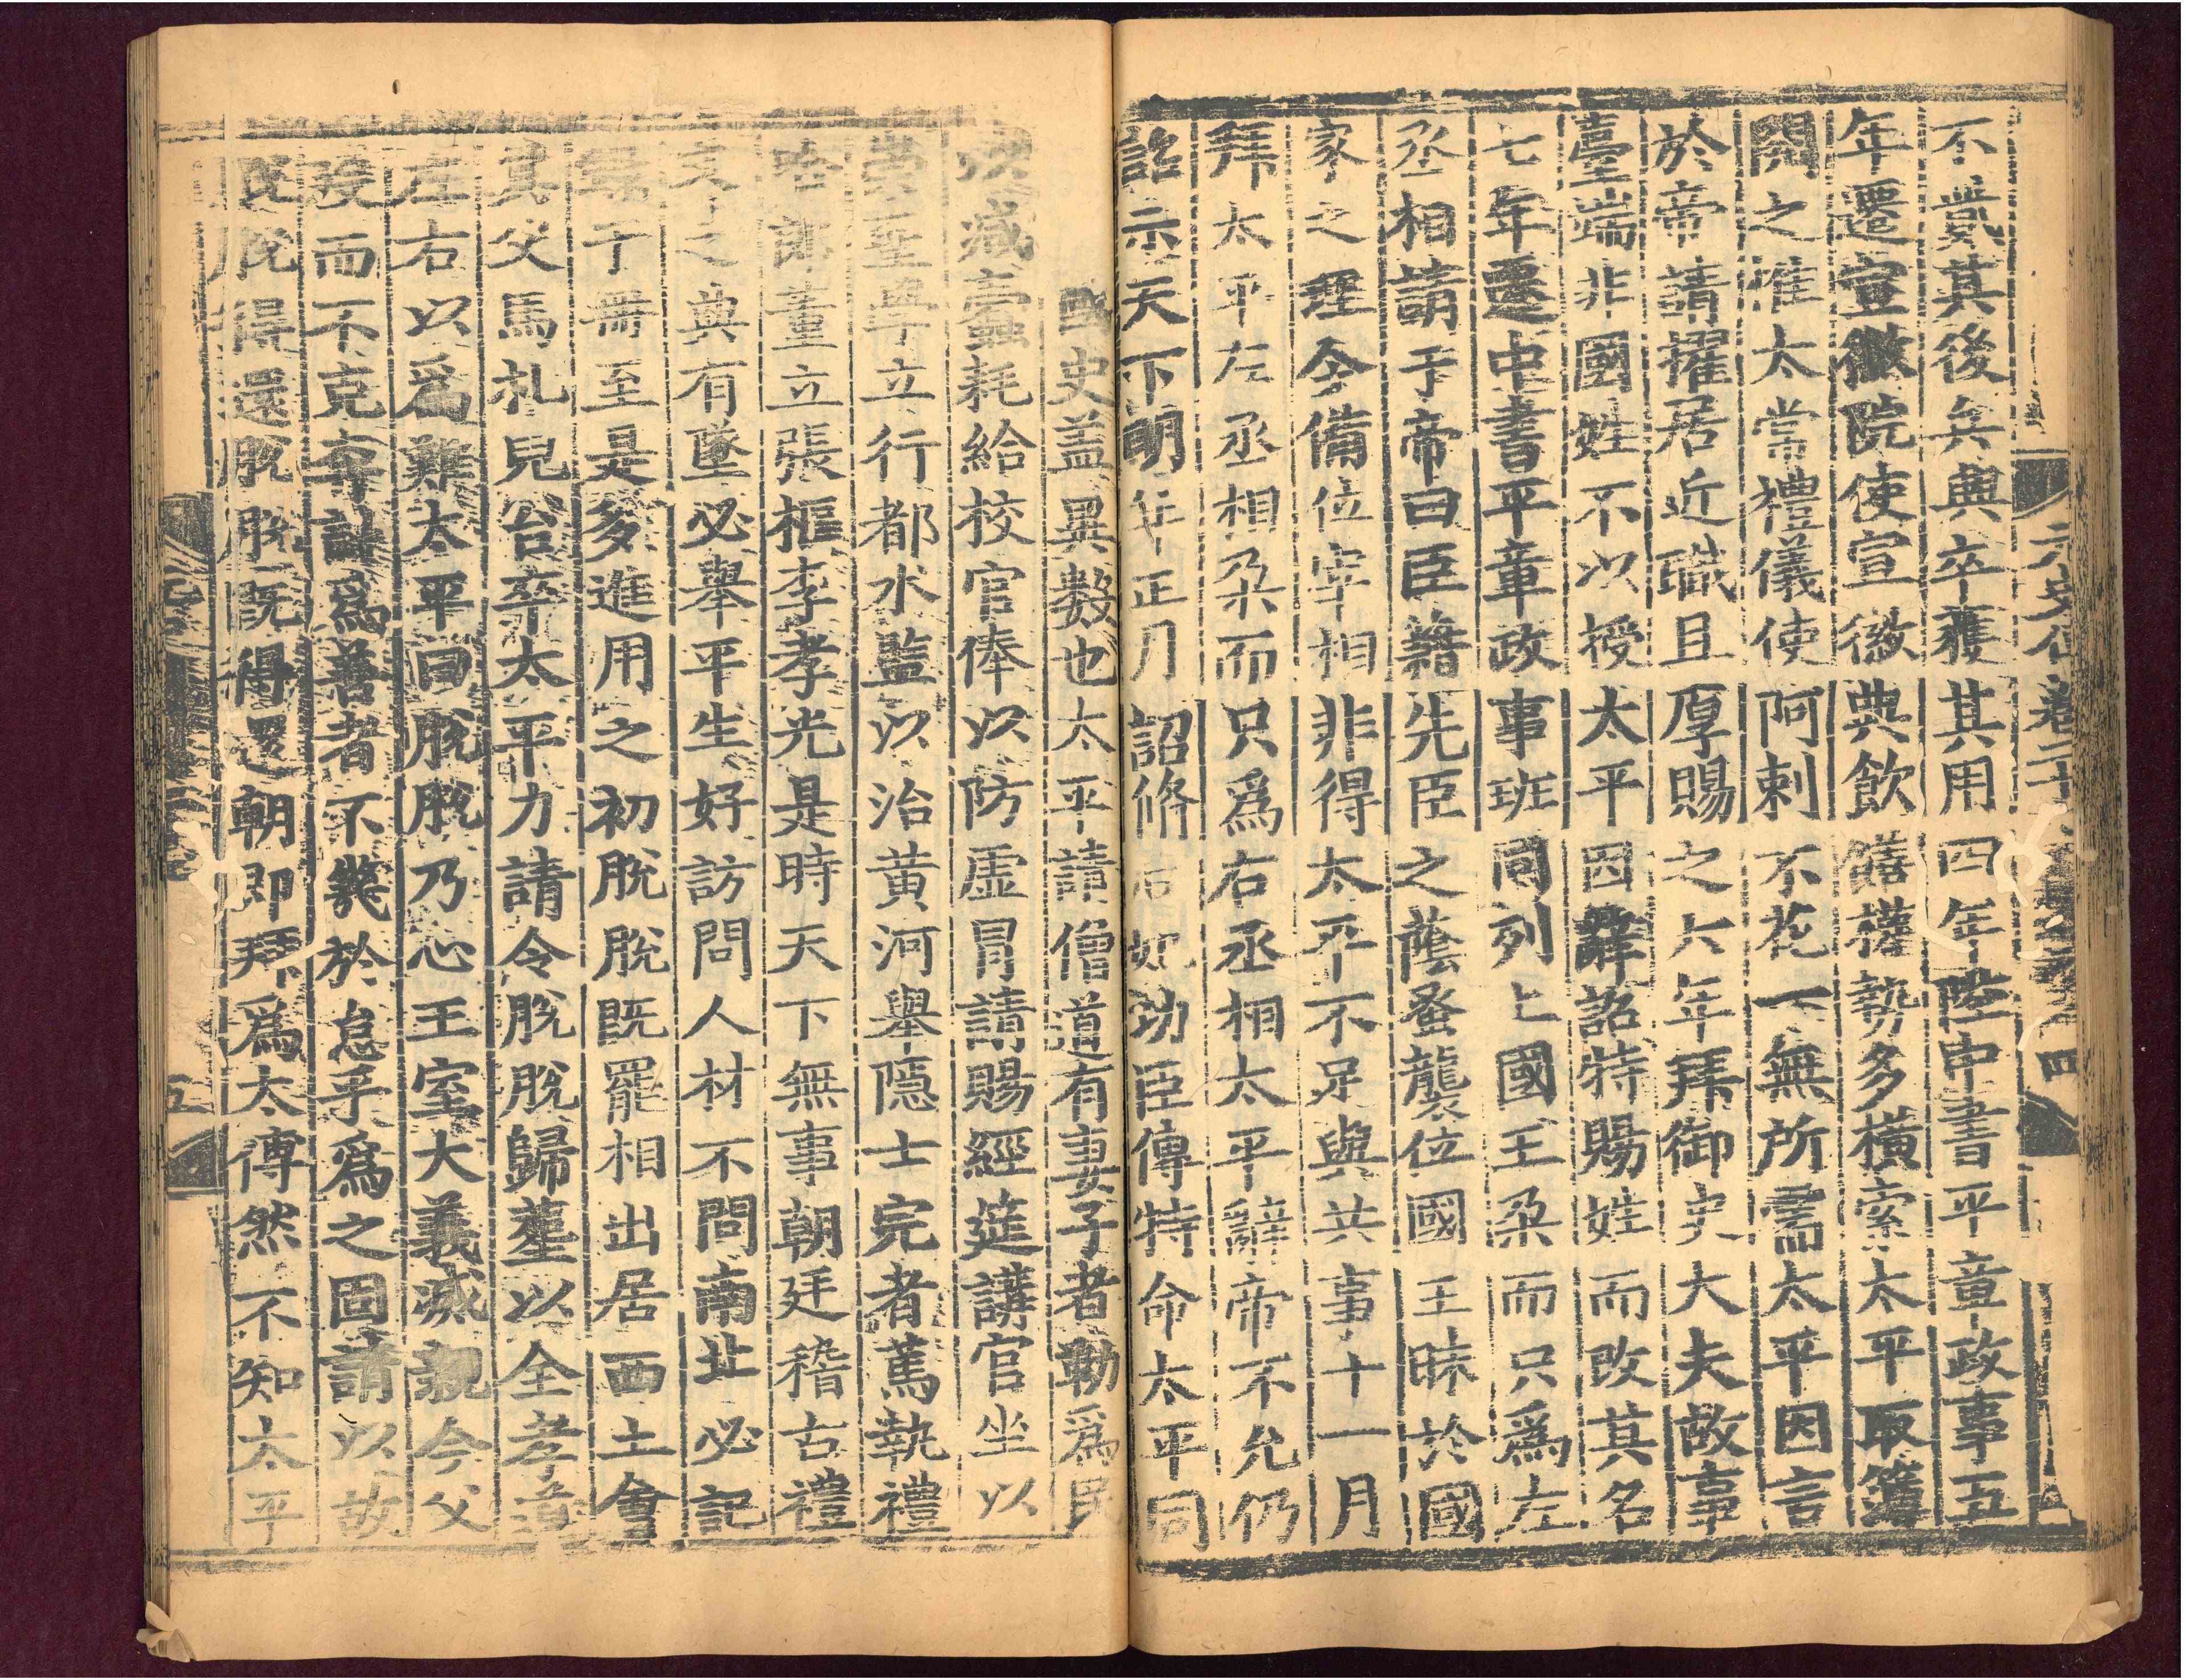 元史傳卷二十 四
不貲其後兵興卒獲其用四年陞中書平章政事五
年遷宣徽院使宣徽典飲饍權勢多橫索太平取簿
閱之惟太常禮儀使阿剌不花一無所需太平因言
於帝請擢居近職且厚賜之六年拜御史大夫故事
臺端非國姓不以授太平因辭詔特賜姓而改其名
七年遷中書平章政事班同列上國王朶而只爲左
丞相請于帝曰臣藉先臣之蔭蚤襲位國王昧於國
家之理今備位宰相非得太平不足與共事十一月
拜太平左丞相朶而只爲右丞相太平辭帝不允仍
詔示天下明年正月詔脩后妃功臣傳特命太平同
國史盖異數也太平請僧道有妻子者勒爲民
以减蠧耗給校官俸以防虛冐請賜經筵講官坐以
崇聖學立行都水監以治黃河舉隱士完者篤執禮
哈郎董立張樞李孝光是時天下無事朝廷稽古禮
文之典有墜必舉平生好訪問人材不問南北必記
錄于冊至是多進用之初脫脫旣罷相出居西土會
其父馬札兒台卒太平力請令脫脫歸塟以全孝道
左右以爲難太平曰脫脫乃心王室大義滅親今父
歿而不克奔訃爲善者不幾於怠乎爲之固請以故
脫脫得還脫脫旣得還朝即拜爲太傅然不知太平
五